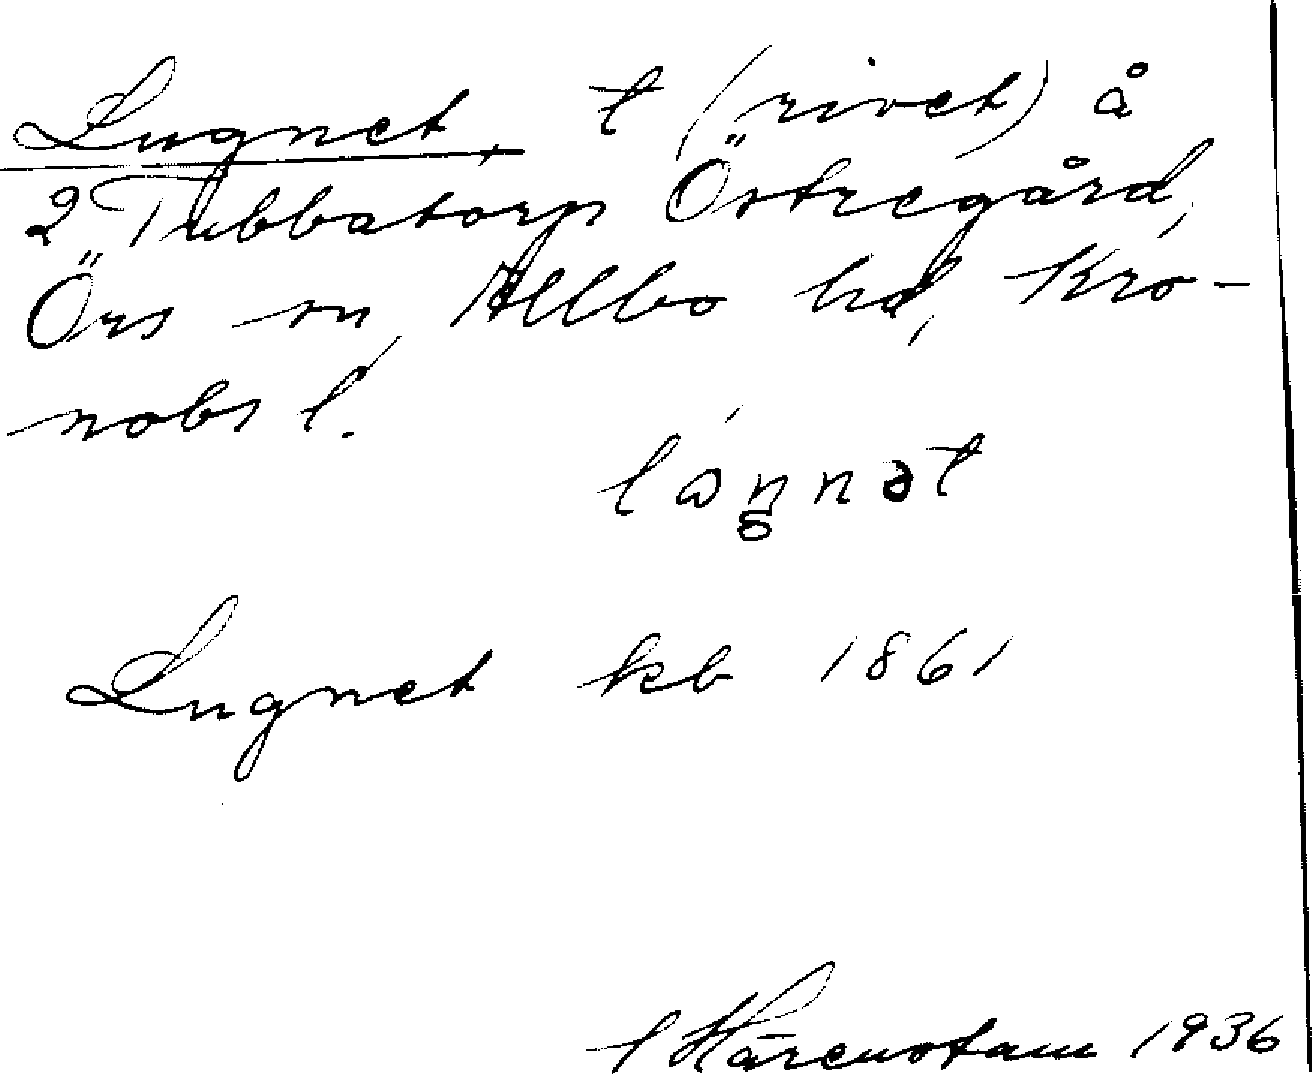 Lugnet, t (rivet) å
2 Tubbatorp Östregård,
Örs sn, Allbo hd, Kro-
nobs l.
lóŋnət
Lugnet kb 1861
Härenstam 1936